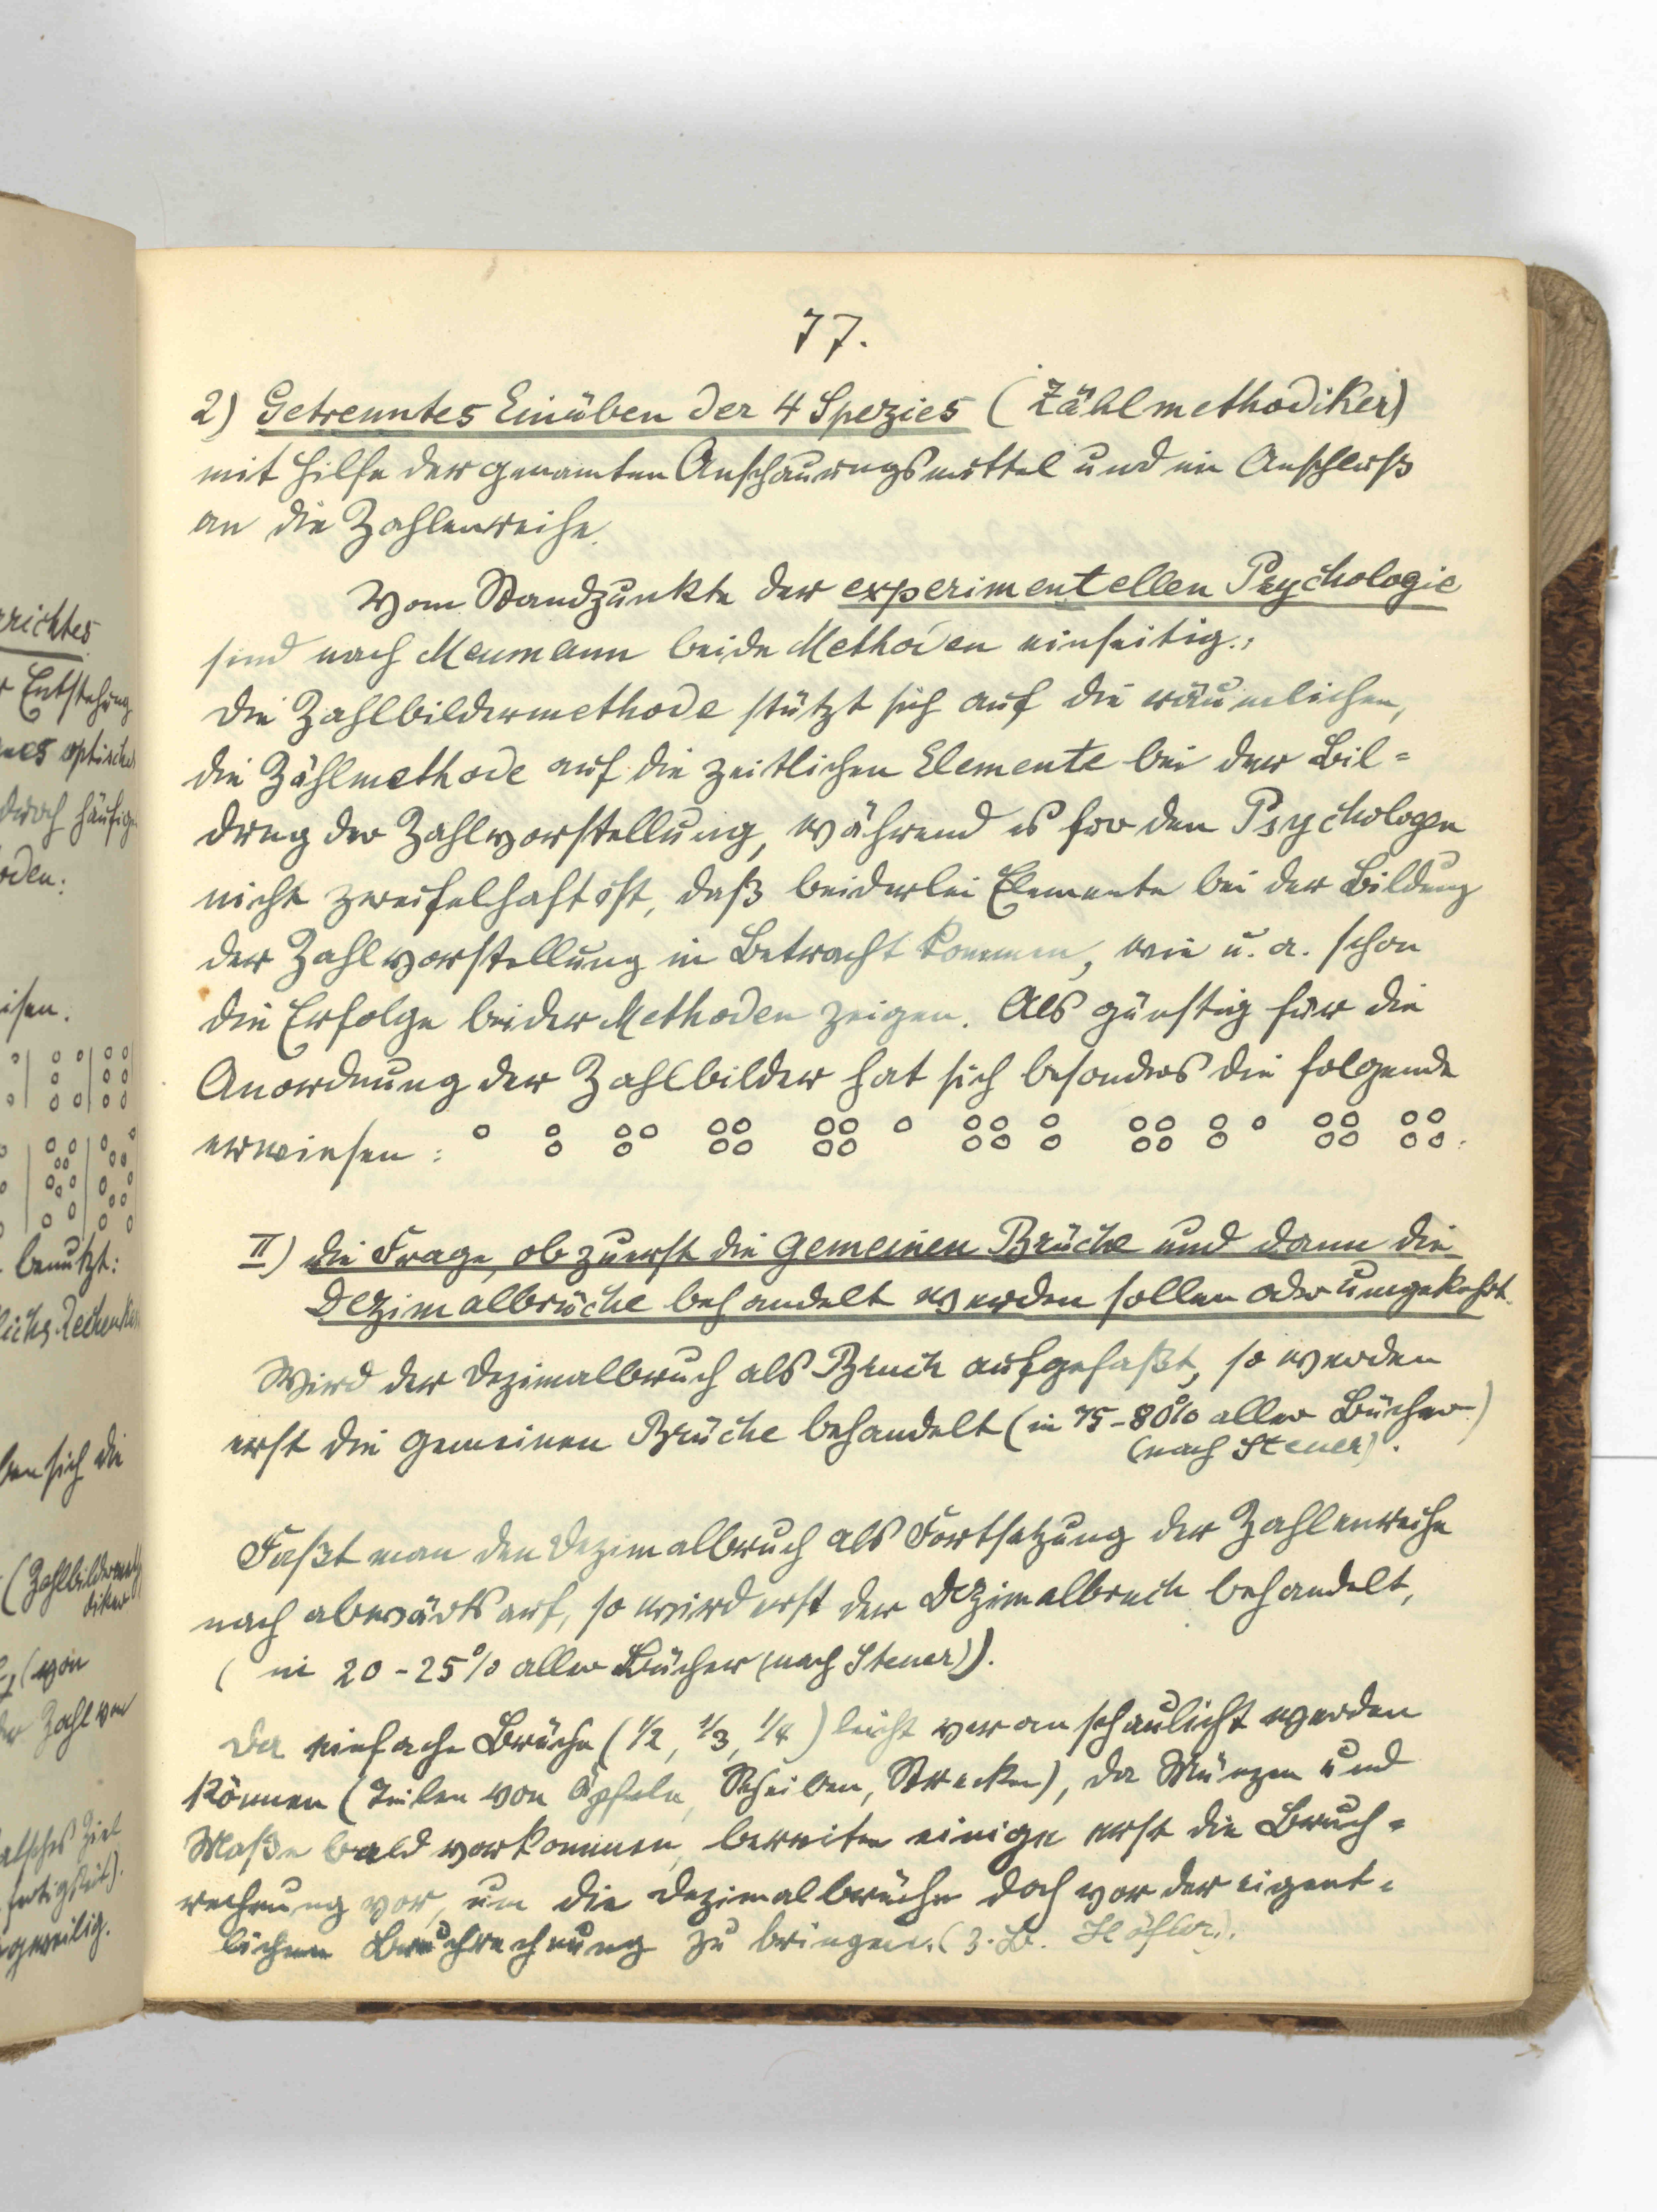 77.
2) Getrenntes Einüben der 4 Spezies (Zählmethodiker)
mit Hilfe der genannten Anschauungsmittel und im Anschluß
an die Zahlenreihe.
Vom Standpunkte der experimentellen Psychologie
sind nach Meumann beide Methoden einseitig:
Die Zahlbildermethode stützt sich auf die räumlichen,
die Zählmethode auf die zeitlichen Elemente bei der Bil=
dung der Zahlvorstellung, während es für den Psychologen
nicht zweifelhaft ist, daß beiderlei Elemente bei der Bildung
der Zahlvorstellung in Betracht kommen, wie u. a. schon
die Erfolge beider Methoden zeigen. Als günstig für die
Anordnung der Zahlbilder hat sich besonders die folgende
erwiesen:
II) Die Frage, ob zuerst die gemeinen Brüche und dann die
Dezimalbrüche behandelt werden sollen oder umgekehrt.
Wird der Dezimalbruch als Bruch aufgefaßt, so werden
erst die gemeinen Brüche behandelt (in 75-80% aller Bücher)
(nach Steuer).
Faßt man den Dezimalbruch als Fortsetzung der Zahlenreihe
nach abwärts auf, so wird erst der Dezimalbruch behandelt,
(in 20-25% aller Bücher (nach Steuer)).
Da einfache Brüche (1/2, 1/3, 1/4) leicht veranschaulicht werden
können (Teilen von Äpfeln, Scheiben, Strecken), da Münzen und
Maße bald vorkommen, bereiten einige erst die Bruch=
rechnung vor, um die Dezimalbrüche doch vor der eigent=
lichen Bruchrechnung zu bringen. (z. B. Höfler).
rrichtes
Entstehung
optischen
durch häufige
oden:
isen.
benutzt:
ben sich die
(Zahlbildermetho
diker
(von
Zahl von
Ziel